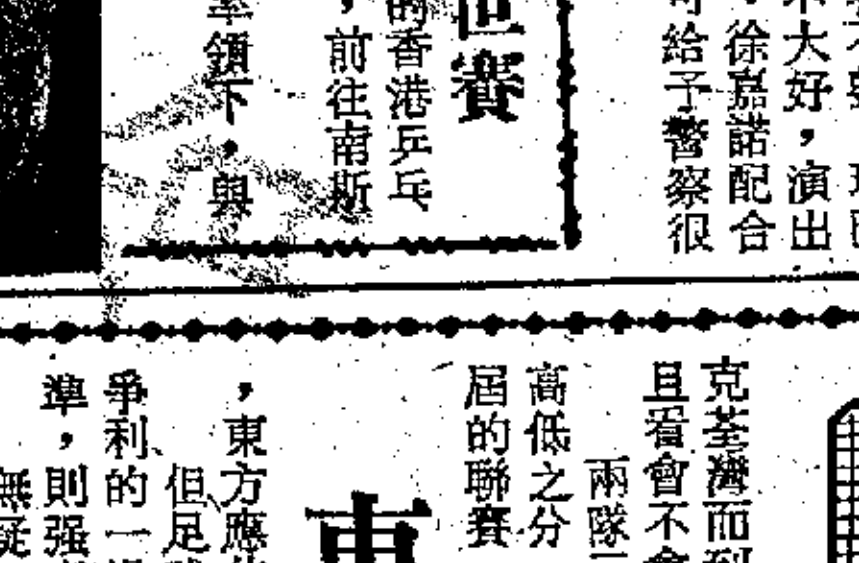 大好，演出
徐嘉諾配合
給予警察很
世賽
的香港乒乓
，前往南斯
率領下，與
克荃灣而到
且看會不會
兩隊
高低之分
屆的聯賽
東
，東方應
但足
爭利的一場
準，則强
無疑